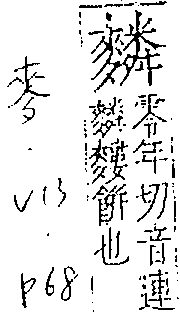 零年切音連
餅也
麥.V13.p68